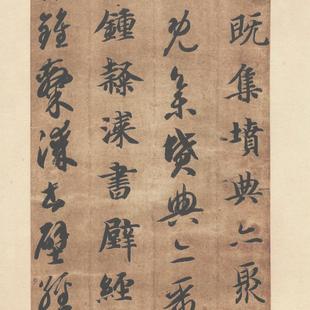 既集墳典亦聚
既集墳典亦聚
鍾隸漆書壁經
鍾隸漆書壁經